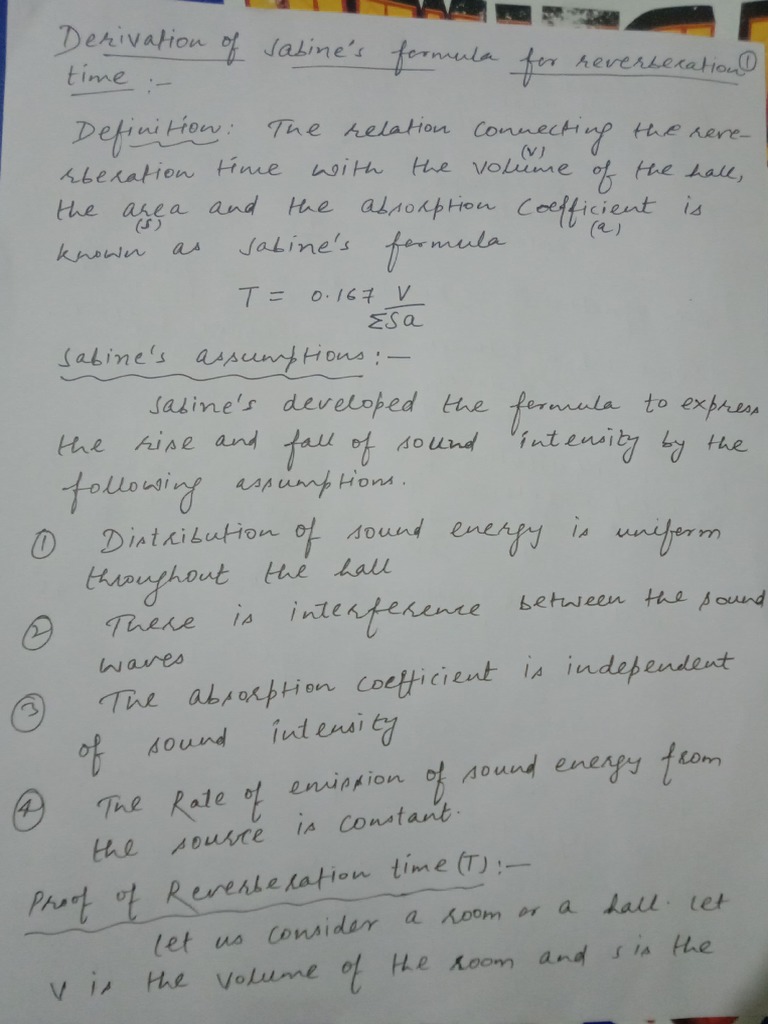 Derivation of Sabine's formula for reverberation ①
time :-
Definition: The relation connecting the reve-
rberation time with the volume (V) of the hall,
the area (S) and the absorption coefficient (a) is
known as Sabine's formula
T = 0.167 V/ΣSa
Sabine's assumptions :-
Sabine's developed the formula to express
the rise and fall of sound intensity by the
following assumptions.
① Distribution of sound energy is uniform
throughout the hall
② There is interference between the sound
waves
③ The absorption coefficient is independent
of sound intensity
④ The Rate of emission of sound energy from
the source is constant.
Proof of Reverberation time (T) :-
Let us consider a room or a hall. Let
V is the volume of the room and s is the